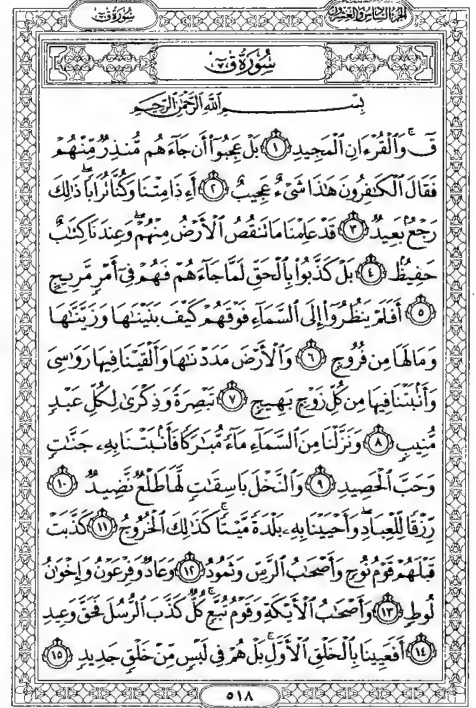 سُورَةُ قٓ
الجُزْءُ السَّادِسُ وَالعِشْرُونَ
سُورَةُ قٓ
بِسْمِ ٱللَّهِ ٱلرَّحْمَٰنِ ٱلرَّحِيمِ
قٓۚ وَٱلْقُرْءَانِ ٱلْمَجِيدِ ١ بَلْ عَجِبُوٓا۟ أَن جَآءَهُم مُّنذِرٌ مِّنْهُمْ
فَقَالَ ٱلْكَٰفِرُونَ هَٰذَا شَىْءٌ عَجِيبٌ ٢ أَءِذَا مِتْنَا وَكُنَّا تُرَابًاۖ ذَٰلِكَ
رَجْعٌۢ بَعِيدٌ ٣ قَدْ عَلِمْنَا مَا تَنقُصُ ٱلْأَرْضُ مِنْهُمْۖ وَعِندَنَا كِتَٰبٌ
حَفِيظٌۢ ٤ بَلْ كَذَّبُوا۟ بِٱلْحَقِّ لَمَّا جَآءَهُمْ فَهُمْ فِىٓ أَمْرٍ مَّرِيجٍ
٥ أَفَلَمْ يَنظُرُوٓا۟ إِلَى ٱلسَّمَآءِ فَوْقَهُمْ كَيْفَ بَنَيْنَٰهَا وَزَيَّنَّٰهَا
وَمَا لَهَا مِن فُرُوجٍ ٦ وَٱلْأَرْضَ مَدَدْنَٰهَا وَأَلْقَيْنَا فِيهَا رَوَٰسِىَ
وَأَنۢبَتْنَا فِيهَا مِن كُلِّ زَوْجٍۭ بَهِيجٍ ٧ تَبْصِرَةً وَذِكْرَىٰ لِكُلِّ عَبْدٍ
مُّنِيبٍ ٨ وَنَزَّلْنَا مِنَ ٱلسَّمَآءِ مَآءً مُّبَٰرَكًا فَأَنۢبَتْنَا بِهِۦ جَنَّٰتٍ
وَحَبَّ ٱلْحَصِيدِ ٩ وَٱلنَّخْلَ بَاسِقَٰتٍ لَّهَا طَلْعٌ نَّضِيدٌ ١٠
رِّزْقًا لِّلْعِبَادِۖ وَأَحْيَيْنَا بِهِۦ بَلْدَةً مَّيْتًاۚ كَذَٰلِكَ ٱلْخُرُوجُ ١١ كَذَّبَتْ
قَبْلَهُمْ قَوْمُ نُوحٍ وَأَصْحَٰبُ ٱلرَّسِّ وَثَمُودُ ١٢ وَعَادٌ وَفِرْعَوْنُ وَإِخْوَٰنُ
لُوطٍ ١٣ وَأَصْحَٰبُ ٱلْأَيْكَةِ وَقَوْمُ تُبَّعٍۚ كُلٌّ كَذَّبَ ٱلرُّسُلَ فَحَقَّ وَعِيدِ
١٤ أَفَعَيِينَا بِٱلْخَلْقِ ٱلْأَوَّلِۚ بَلْ هُمْ فِى لَبْسٍ مِّنْ خَلْقٍ جَدِيدٍ ١٥
٥١٨